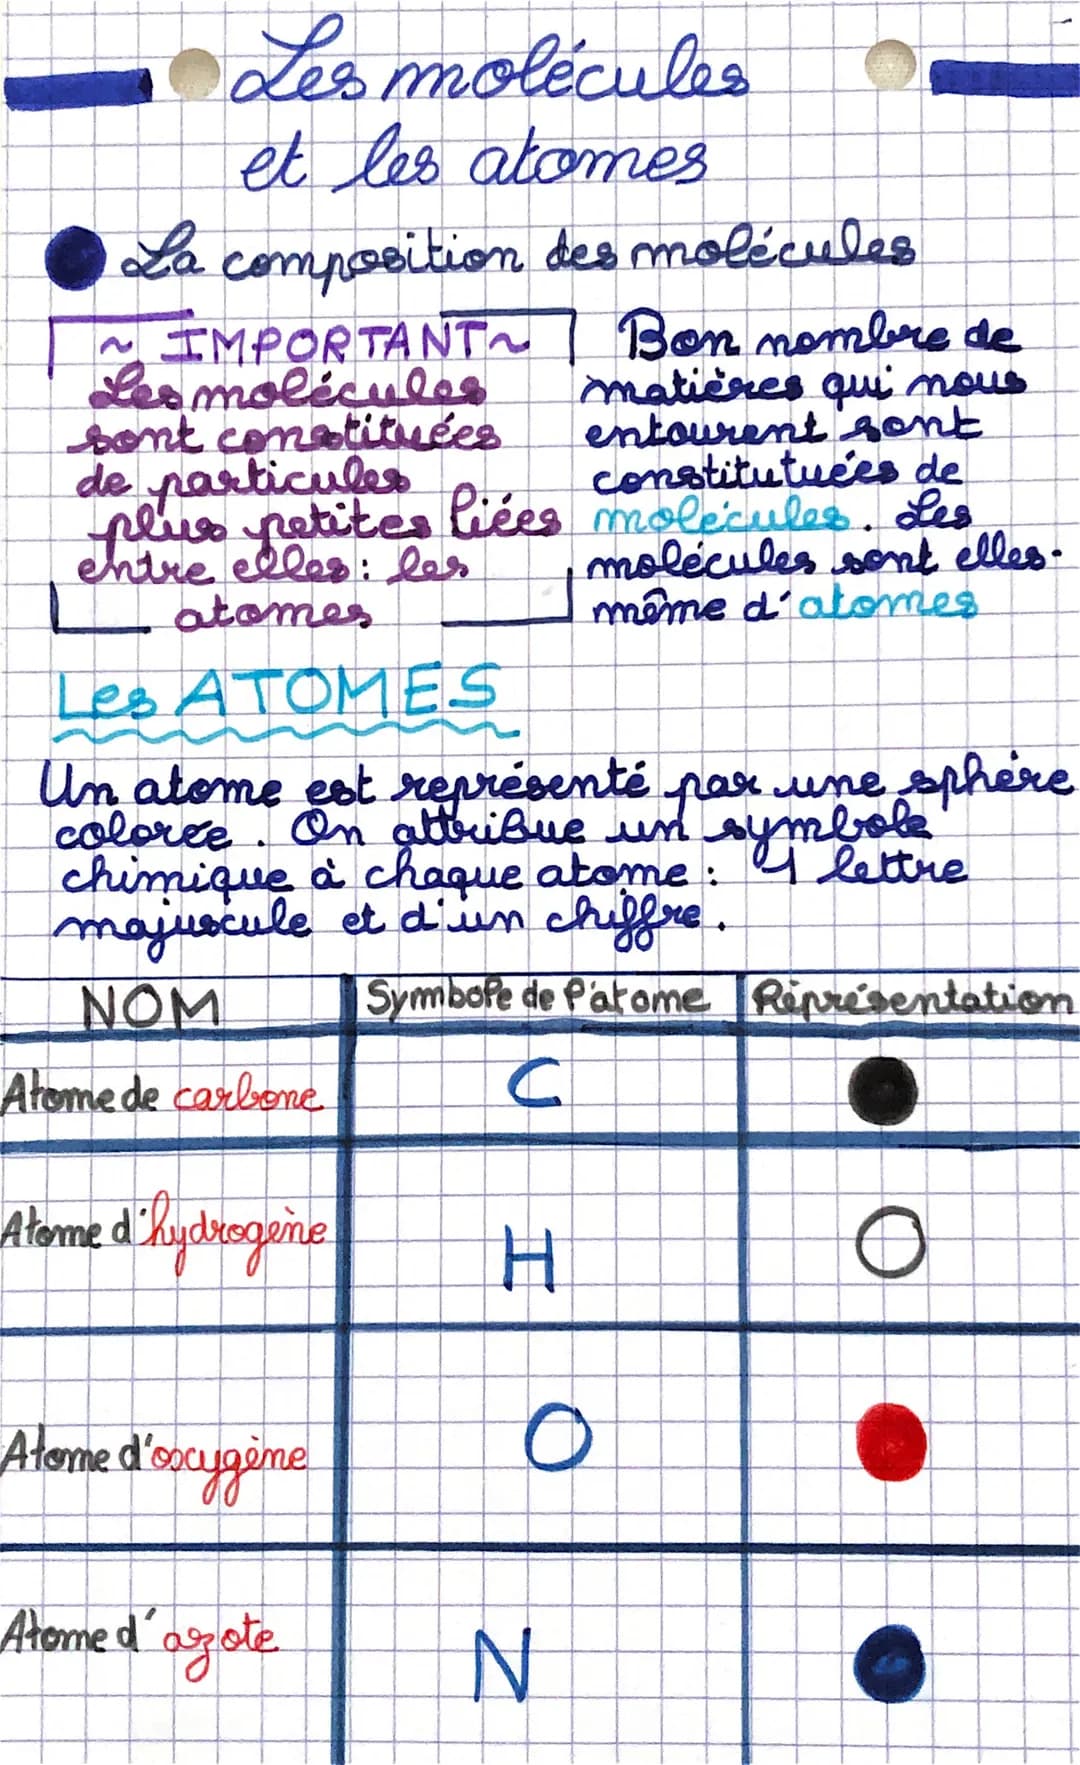 Les molécules
et les atomes
La composition des molécules
~ IMPORTANT ~
Les molécules
sont constituées
de particules
plus petites liées
entre elles : les
atomes
Bon nombre de
matières qui nous
entourent sont
constitutuées de
molécules. Les
molécules sont elles-
même d'atomes
Les ATOMES
Un atome est représenté par une sphère
colorée. On attribue un symbole
chimique à chaque atome : 1 lettre
majuscule et d'un chiffre.
NOM Symbole de l'atome Réprésentation
Atome de carbone C
Atome d'hydrogène H
Atome d'oxygène O
Atome d'azote N